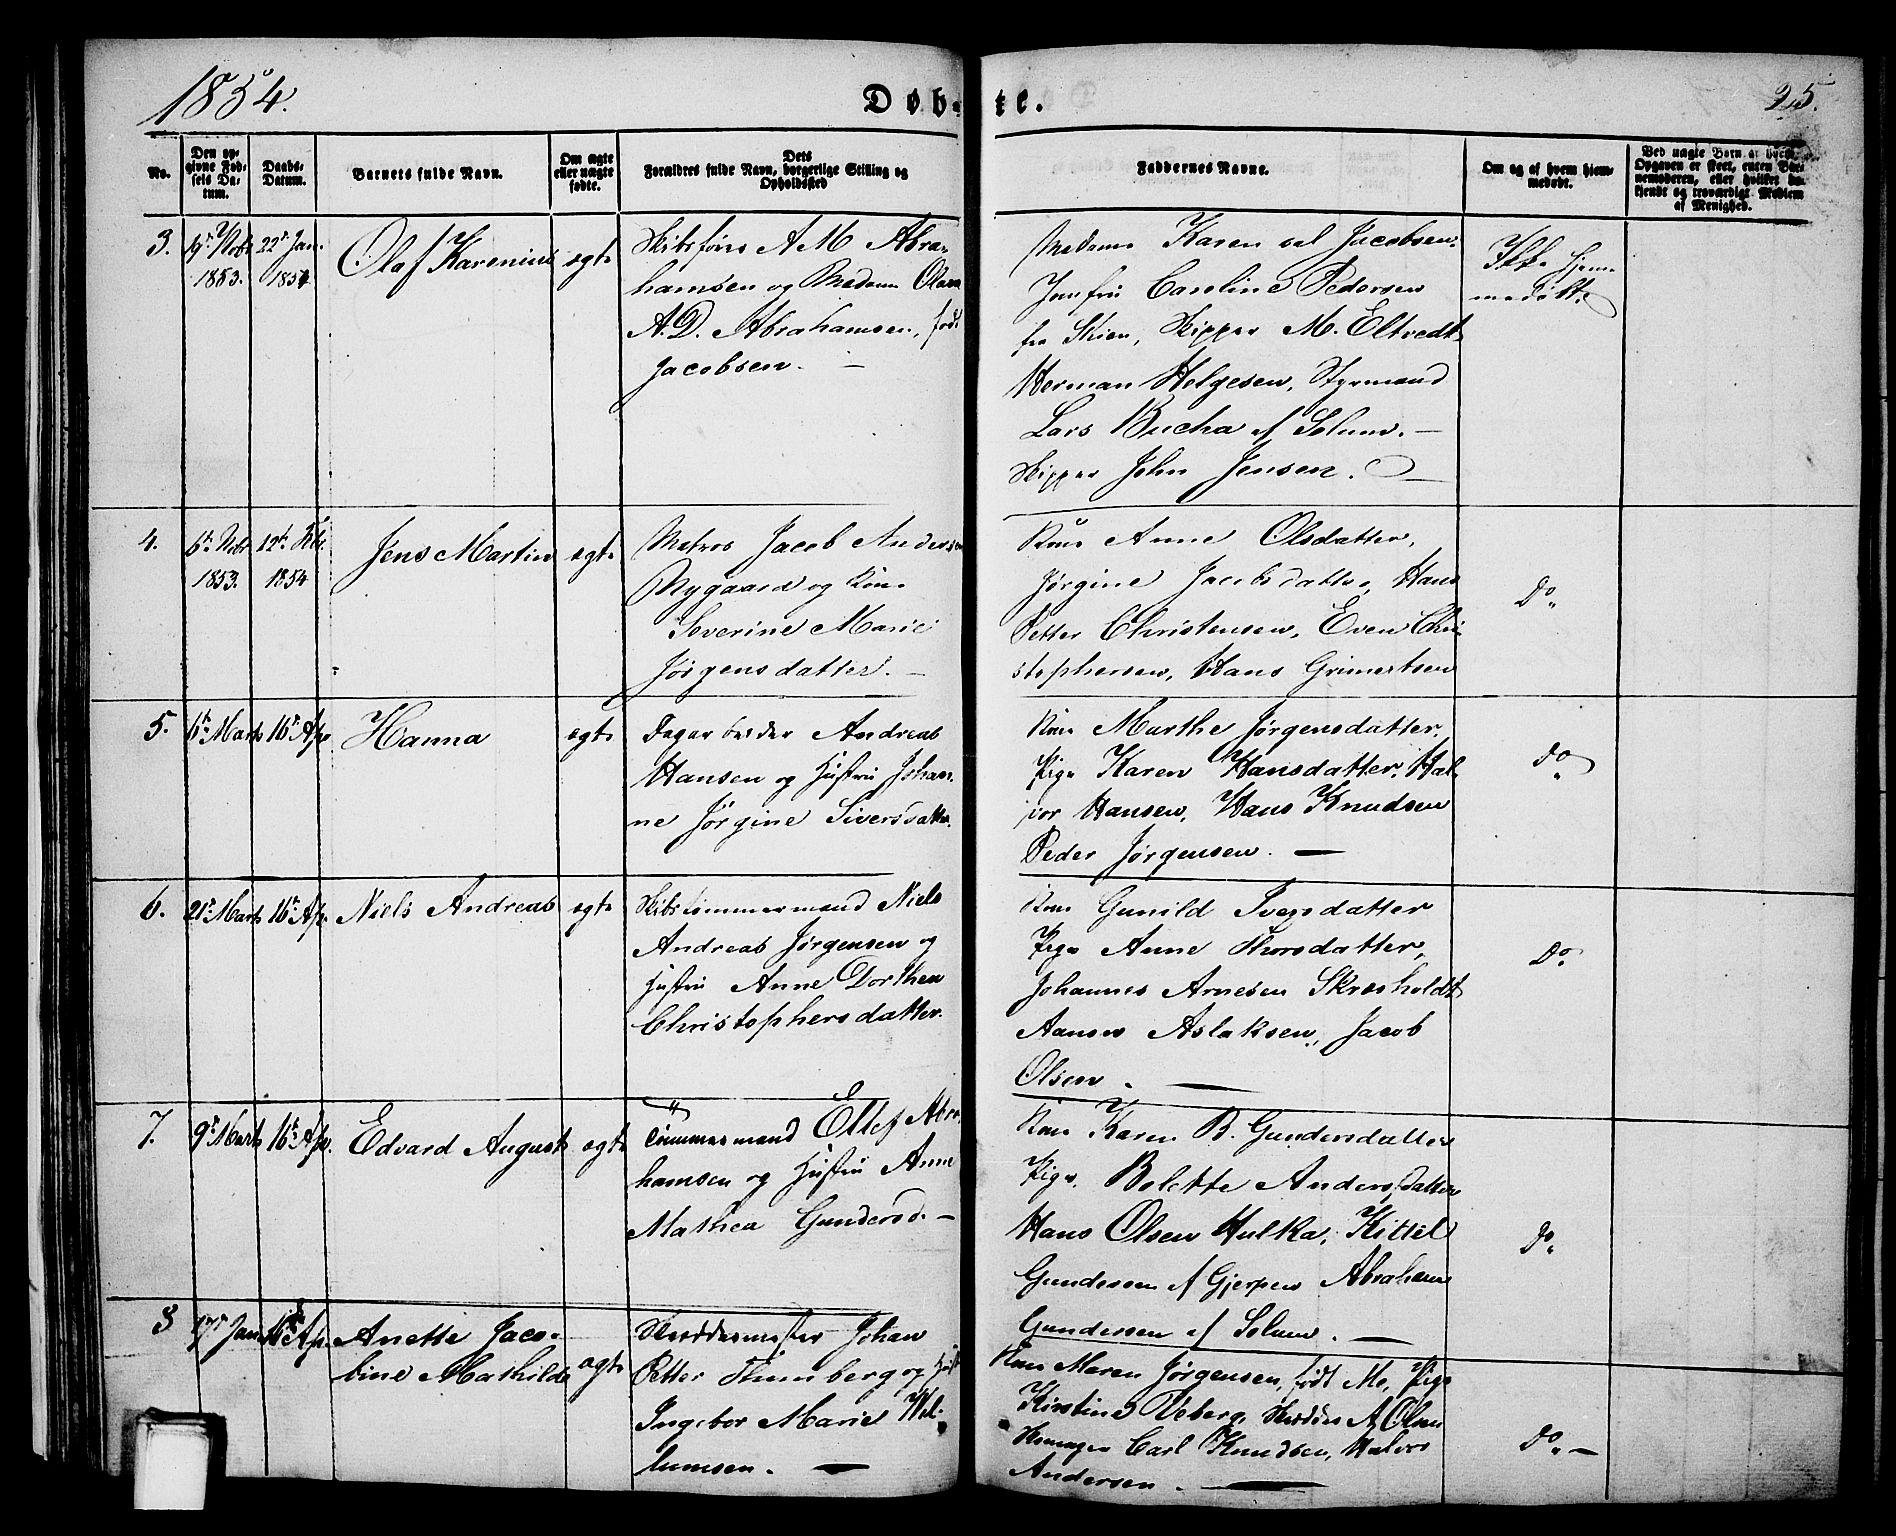 1854.
Døb-
te.
25.
No.
Den op-
givne Fød-
sels Da-
tum.
Daabs-
Datum.
Barnets fulde Navn.
Om ægte
eller uægte
fødte.
Dets
Forældres fulde Navn, borgerlige Stilling og
Opholdssted
Faddernes Navne.
Om og af hvem hjem-
medøbt.
Ved uægte Børn, at hvem
Opgaven er skeet, enten Bar-
nemoderen, eller hvilket be-
kjendt og troværdigt Medlem
af Menighed.
3.
19de Nobr
1853.
22de Jan.
1854
Olaf Karenius
ægte
Skibsfører A M Abra-
hamsen og Madam Olava
A. D. Abrahamsen, født
Jacobsen. —
Madame Karen sal Jacobsen.
Jomfru Caroline Pedersen
fra Skien, Skipper M. Eltvedt
Herman Helgesen, Styrmand
Lars Bucha af Solum. —
Skipper John Jensen. —
Ikke hjem-
medøbt
4.
6te Nobr
1853.
12te Feb.
1854
Jens Martin
ægte
Matros Jacob Andersen
Nygaard og Kone
Severine Marie
Jørgensdatter. —
Kone Anne Olsdatter,
Jørgine Jacobsdatter, Hans
Petter Christensen, Even Chri-
stophersen, Hans Grimertsen
Do
5.
6te Marts
16de Ap.
Hanna
ægte
Dagarbeider Andreas
Hansen og Hustru Johan-
ne Jørgine Siversdatter.
Kone Marthe Jørgensdatter,
Pige Karen Hansdatter, Hal-
vor Hansen, Hans Knudsen
Peder Jørgensen. —
Do
6.
21de Marts
16de Ap.
Niels Andreas
ægte
Skibstømmermand Niels
Andreas Jørgensen og
Hustru Anne Dorthea
Christophersdatter.
Kone Gunild Iversdatter
Pige Anne Thorsdatter,
Johannes Arnesen Skresholdt
Aanon Aslaksen, Jacob
Olsen. —
Do
7.
9de Marts
16de Ap.
Edvard August
ægte
Tømmermand Ellef Abra-
hamsen og Hustru Anne
Mathea Gundersd. —
Kone Karen B. Gundersdatter
Pige Bolette Andersdatter
Hans Olsen Hulka, Kittel
Gundersen af Gjerpen Abraham
Gundersen af Solum. —
Do
8
17de Jan
16de Ap.
Anette Jaco-
bine Mathilde
ægte
Skreddermester Johan
Petter Thunberg og Hust
Ingebor Marie Wil-
lumsen. —
Kone Maren Jørgensen, født Mo, Pige
Kirstine Veberg, Skrædder A Olsen
Carl Knudsen, Halvor
Andersen. —
Do —